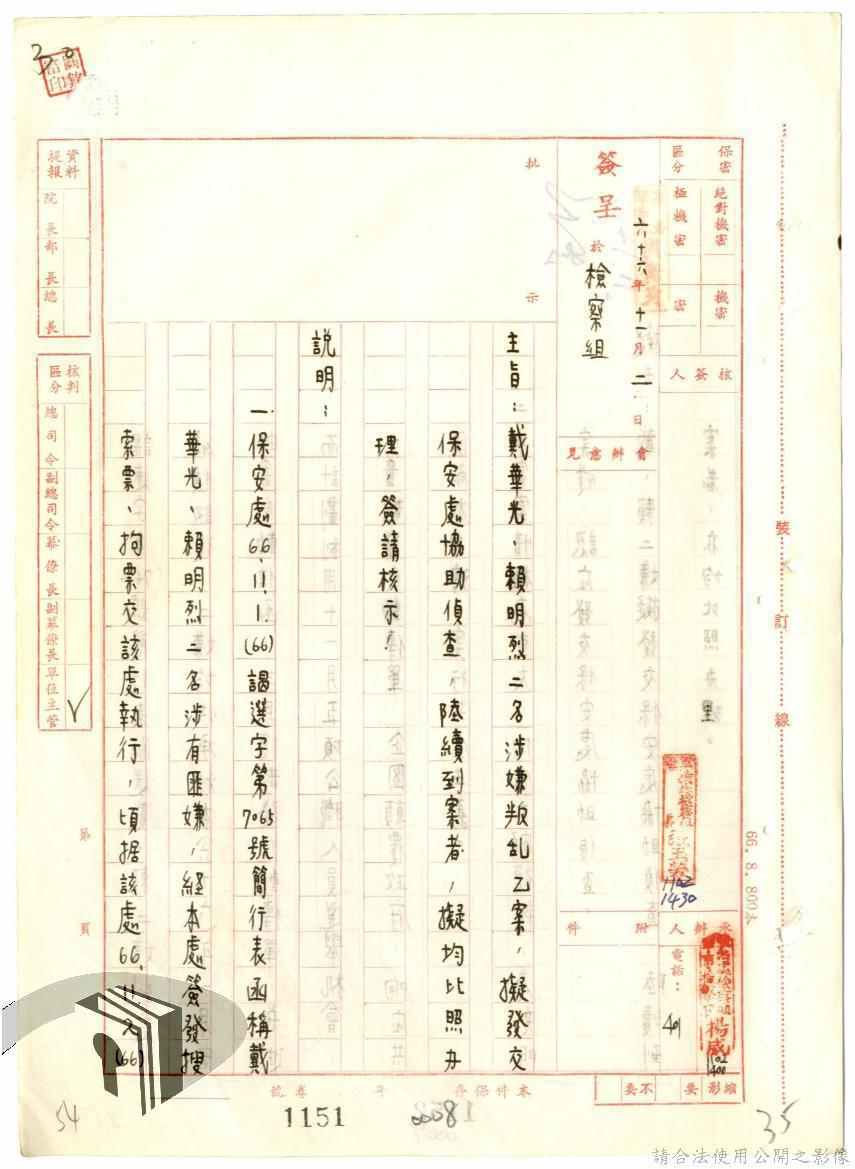 保密區分
絕對機密
極機密
機密
密
核簽人
簽呈
六十六年十一月二日
於檢察組
會辦意見
承辦人
電話：401
楊盛
1102
1400
1102
1430
附件
批示
主旨：戴華光、賴明烈二名涉嫌叛乱乙案，擬發交
保安處協助偵查，陸續到案者，擬均比照办
理，簽請核示！
說明：
一保安處66.11.1.(66)謁選字第7065號簡行表函稱戴
華光、賴明烈二名涉有匪嫌，経本處簽發搜
索票、拘票交該處執行，頃据該處66.11.2(66)
資料提報
院長
部長
總長
核判區分
總司令
副總司令
幕僚長
副幕僚長
單位主管
裝訂線
66.8.800本
第頁
縮影
要
不要
本件保存年
卷號
1151
30
54
35
請合法使用公開之影像